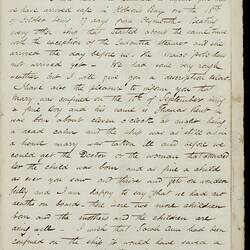 to have arrived safe in Hobsons Bay on the 1st
of October being 7 days from Plymouth. Beating
every other ship that started about the same time
with the exception of the Steamer and she
arrived the day before us. The
not arrived yet — We had some very rough
weather but I will give you a description below.
I have also the pleasure to inform you that
Mary was confined on the 10th of September being
a fine boy and his name is
was born about eleven o'clock at night being
a dead calm and the ship was as still as in
a house Mary was taken ill and before we
could get the Doctor or the woman that attended
her the child was born and as fine a child
as ever you saw and things and got on wonder-
fully and I am happy to say that we had no
deaths on board. There were two more children
born and the mothers and the children are
doing well. I wish that Sarah Ann had been
confined on the ship it would have saved a